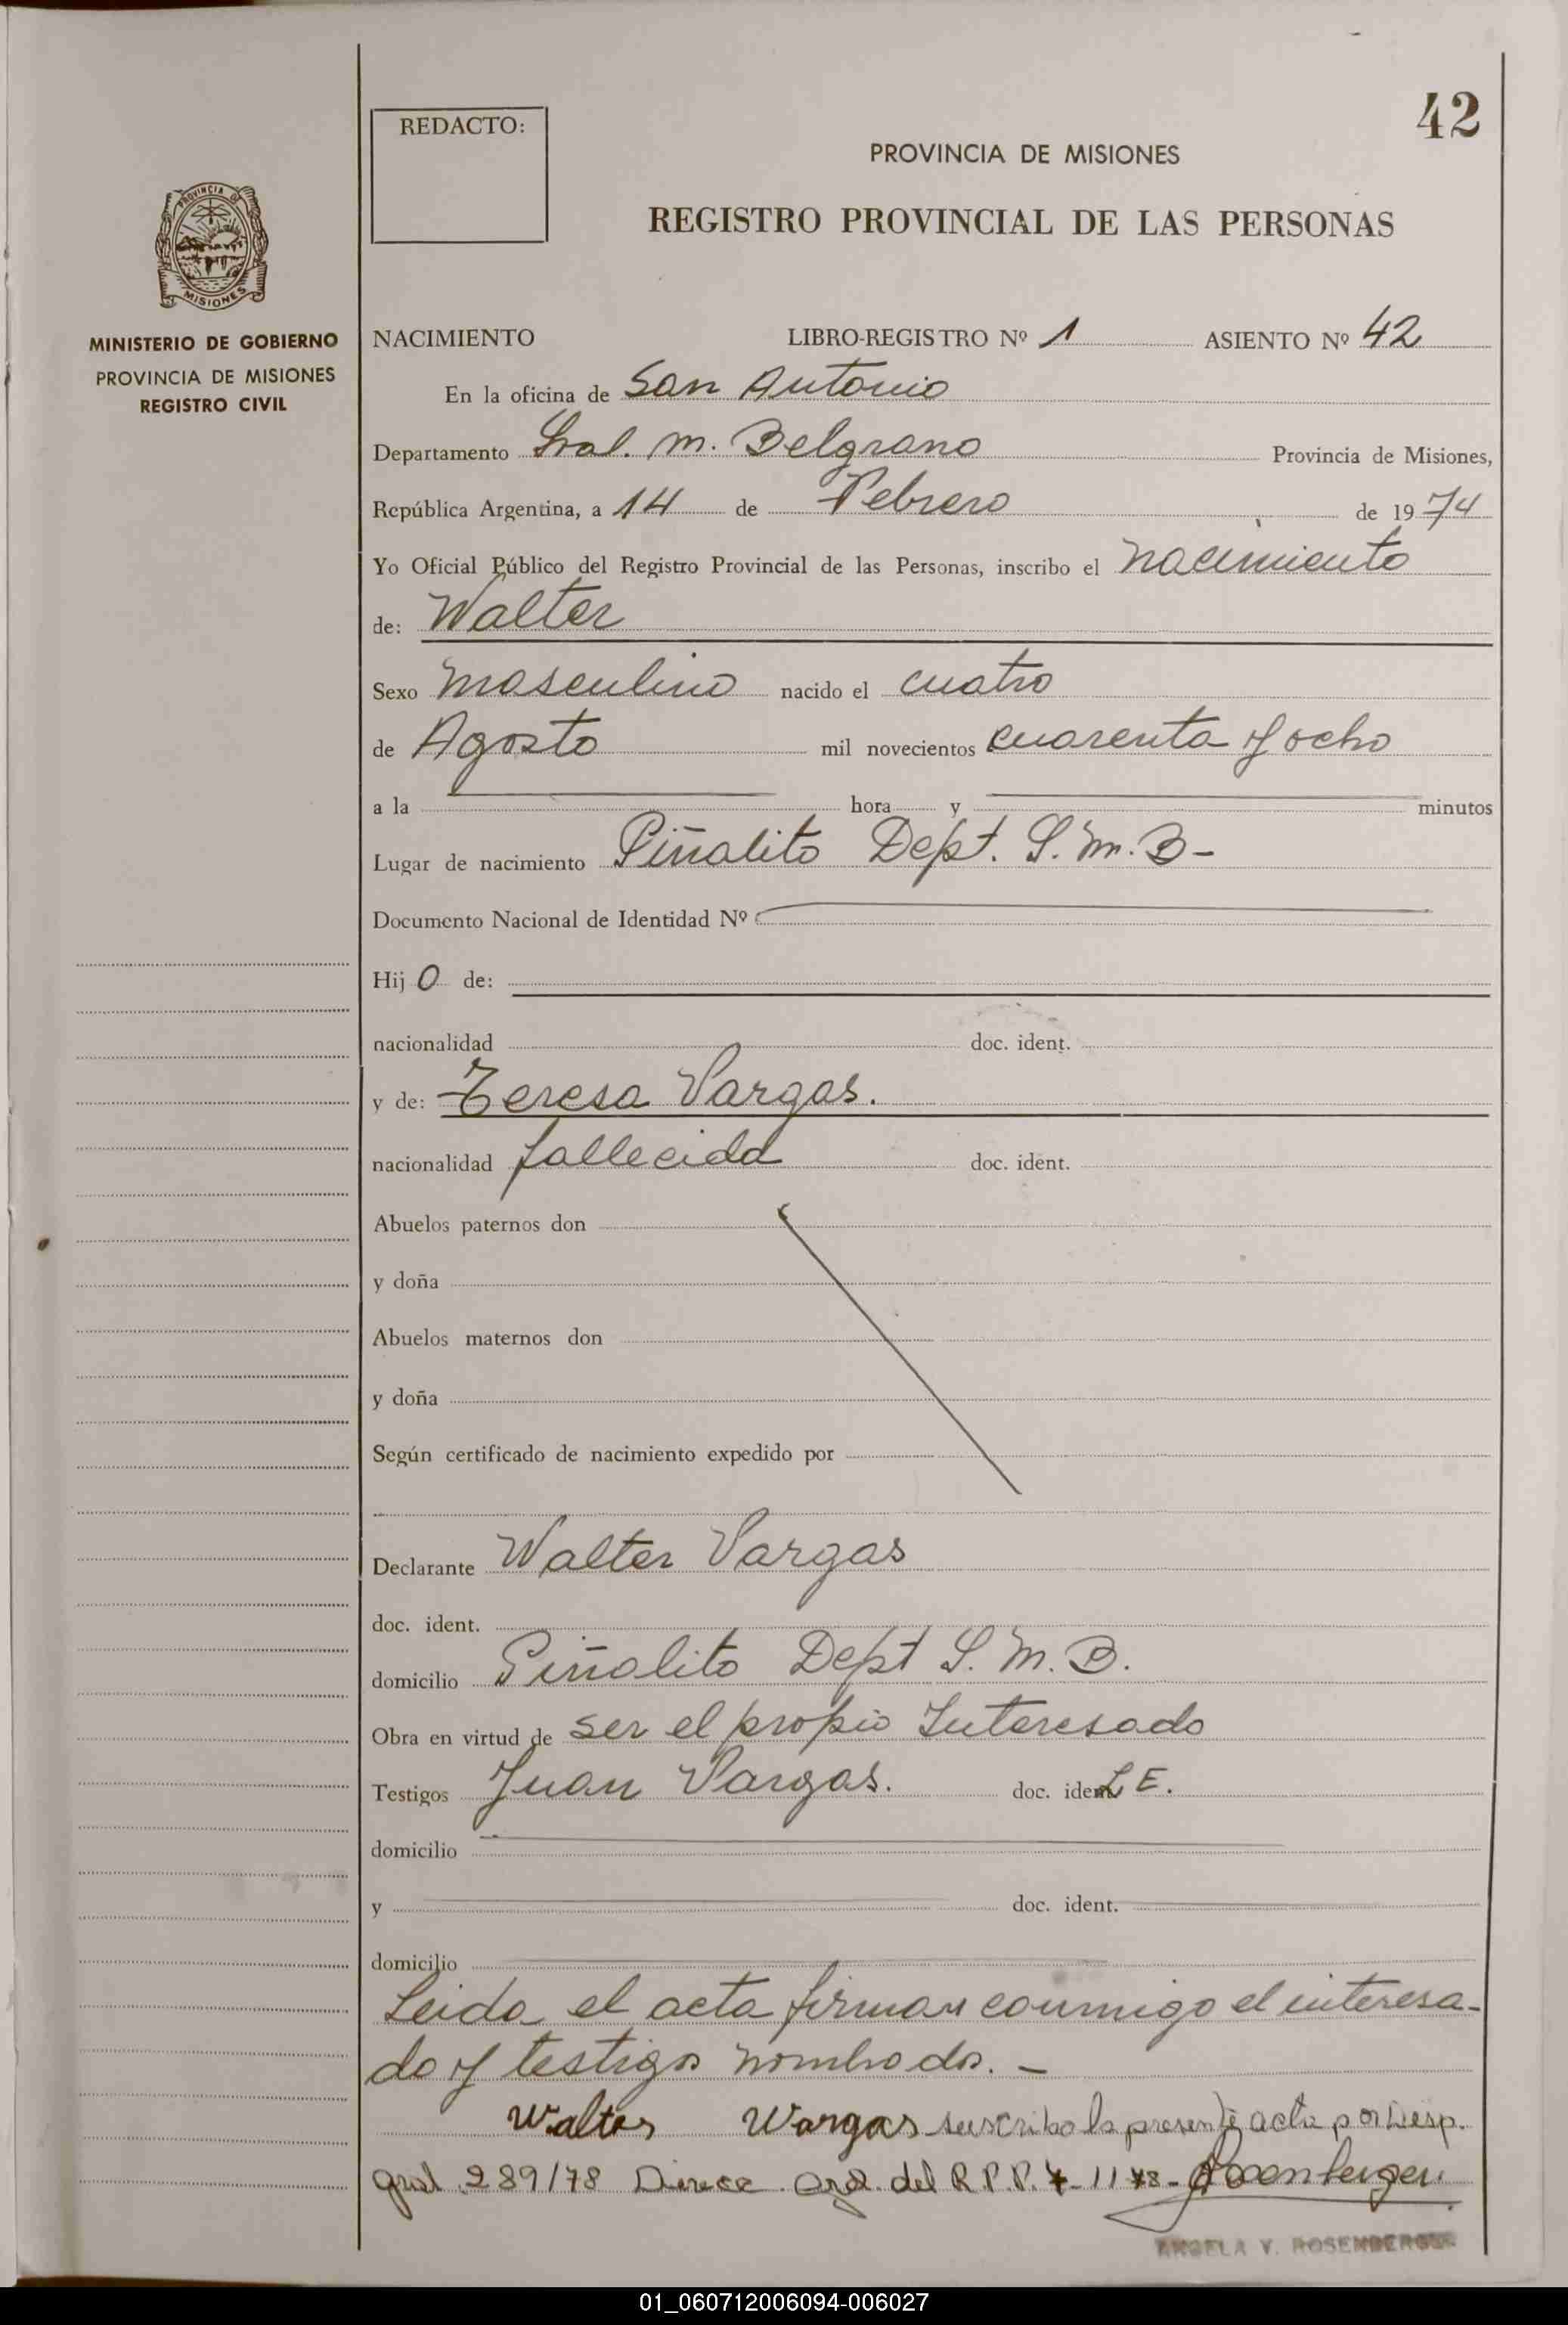 42
REDACTO:
PROVINCIA DE MISIONES
REGISTRO PROVINCIAL DE LAS PERSONAS
PROVINCIA DE
MISIONES
MINISTERIO DE GOBIERNO
PROVINCIA DE MISIONES
REGISTRO CIVIL
NACIMIENTO LIBRO-REGISTRO Nº 1 ASIENTO Nº 42
En la oficina de San Antonio
Departamento Gral. M. Belgrano Provincia de Misiones,
República Argentina, a 14 de Febrero de 1974
Yo Oficial Público del Registro Provincial de las Personas, inscribo el nacimiento
de: Walter
Sexo masculino nacido el cuatro
de Agosto mil novecientos cuarenta y ocho
a la hora y minutos
Lugar de nacimiento Piñalito Dept. G. M. B-
Documento Nacional de Identidad Nº
Hijo de:
nacionalidad doc. ident.
y de: Teresa Vargas.
nacionalidad fallecida doc. ident.
Abuelos paternos don
y doña
Abuelos maternos don
y doña
Según certificado de nacimiento expedido por
Declarante Walter Vargas
doc. ident.
domicilio Piñalito Dept G. M. B.
Obra en virtud de ser el propio Interesado
Testigos Juan Vargas. doc. ident. L E.
domicilio
y doc. ident.
domicilio
Leida el acta firman conmigo el interesa-
do y testigo nombrado. -
Walter Wargas suscribo la presente acta por Disp.
gral 289/78 Direcc. Gral. del R.P.P. 11 78-
ANGELA Y. ROSENBERGER
01_060712006094-006027